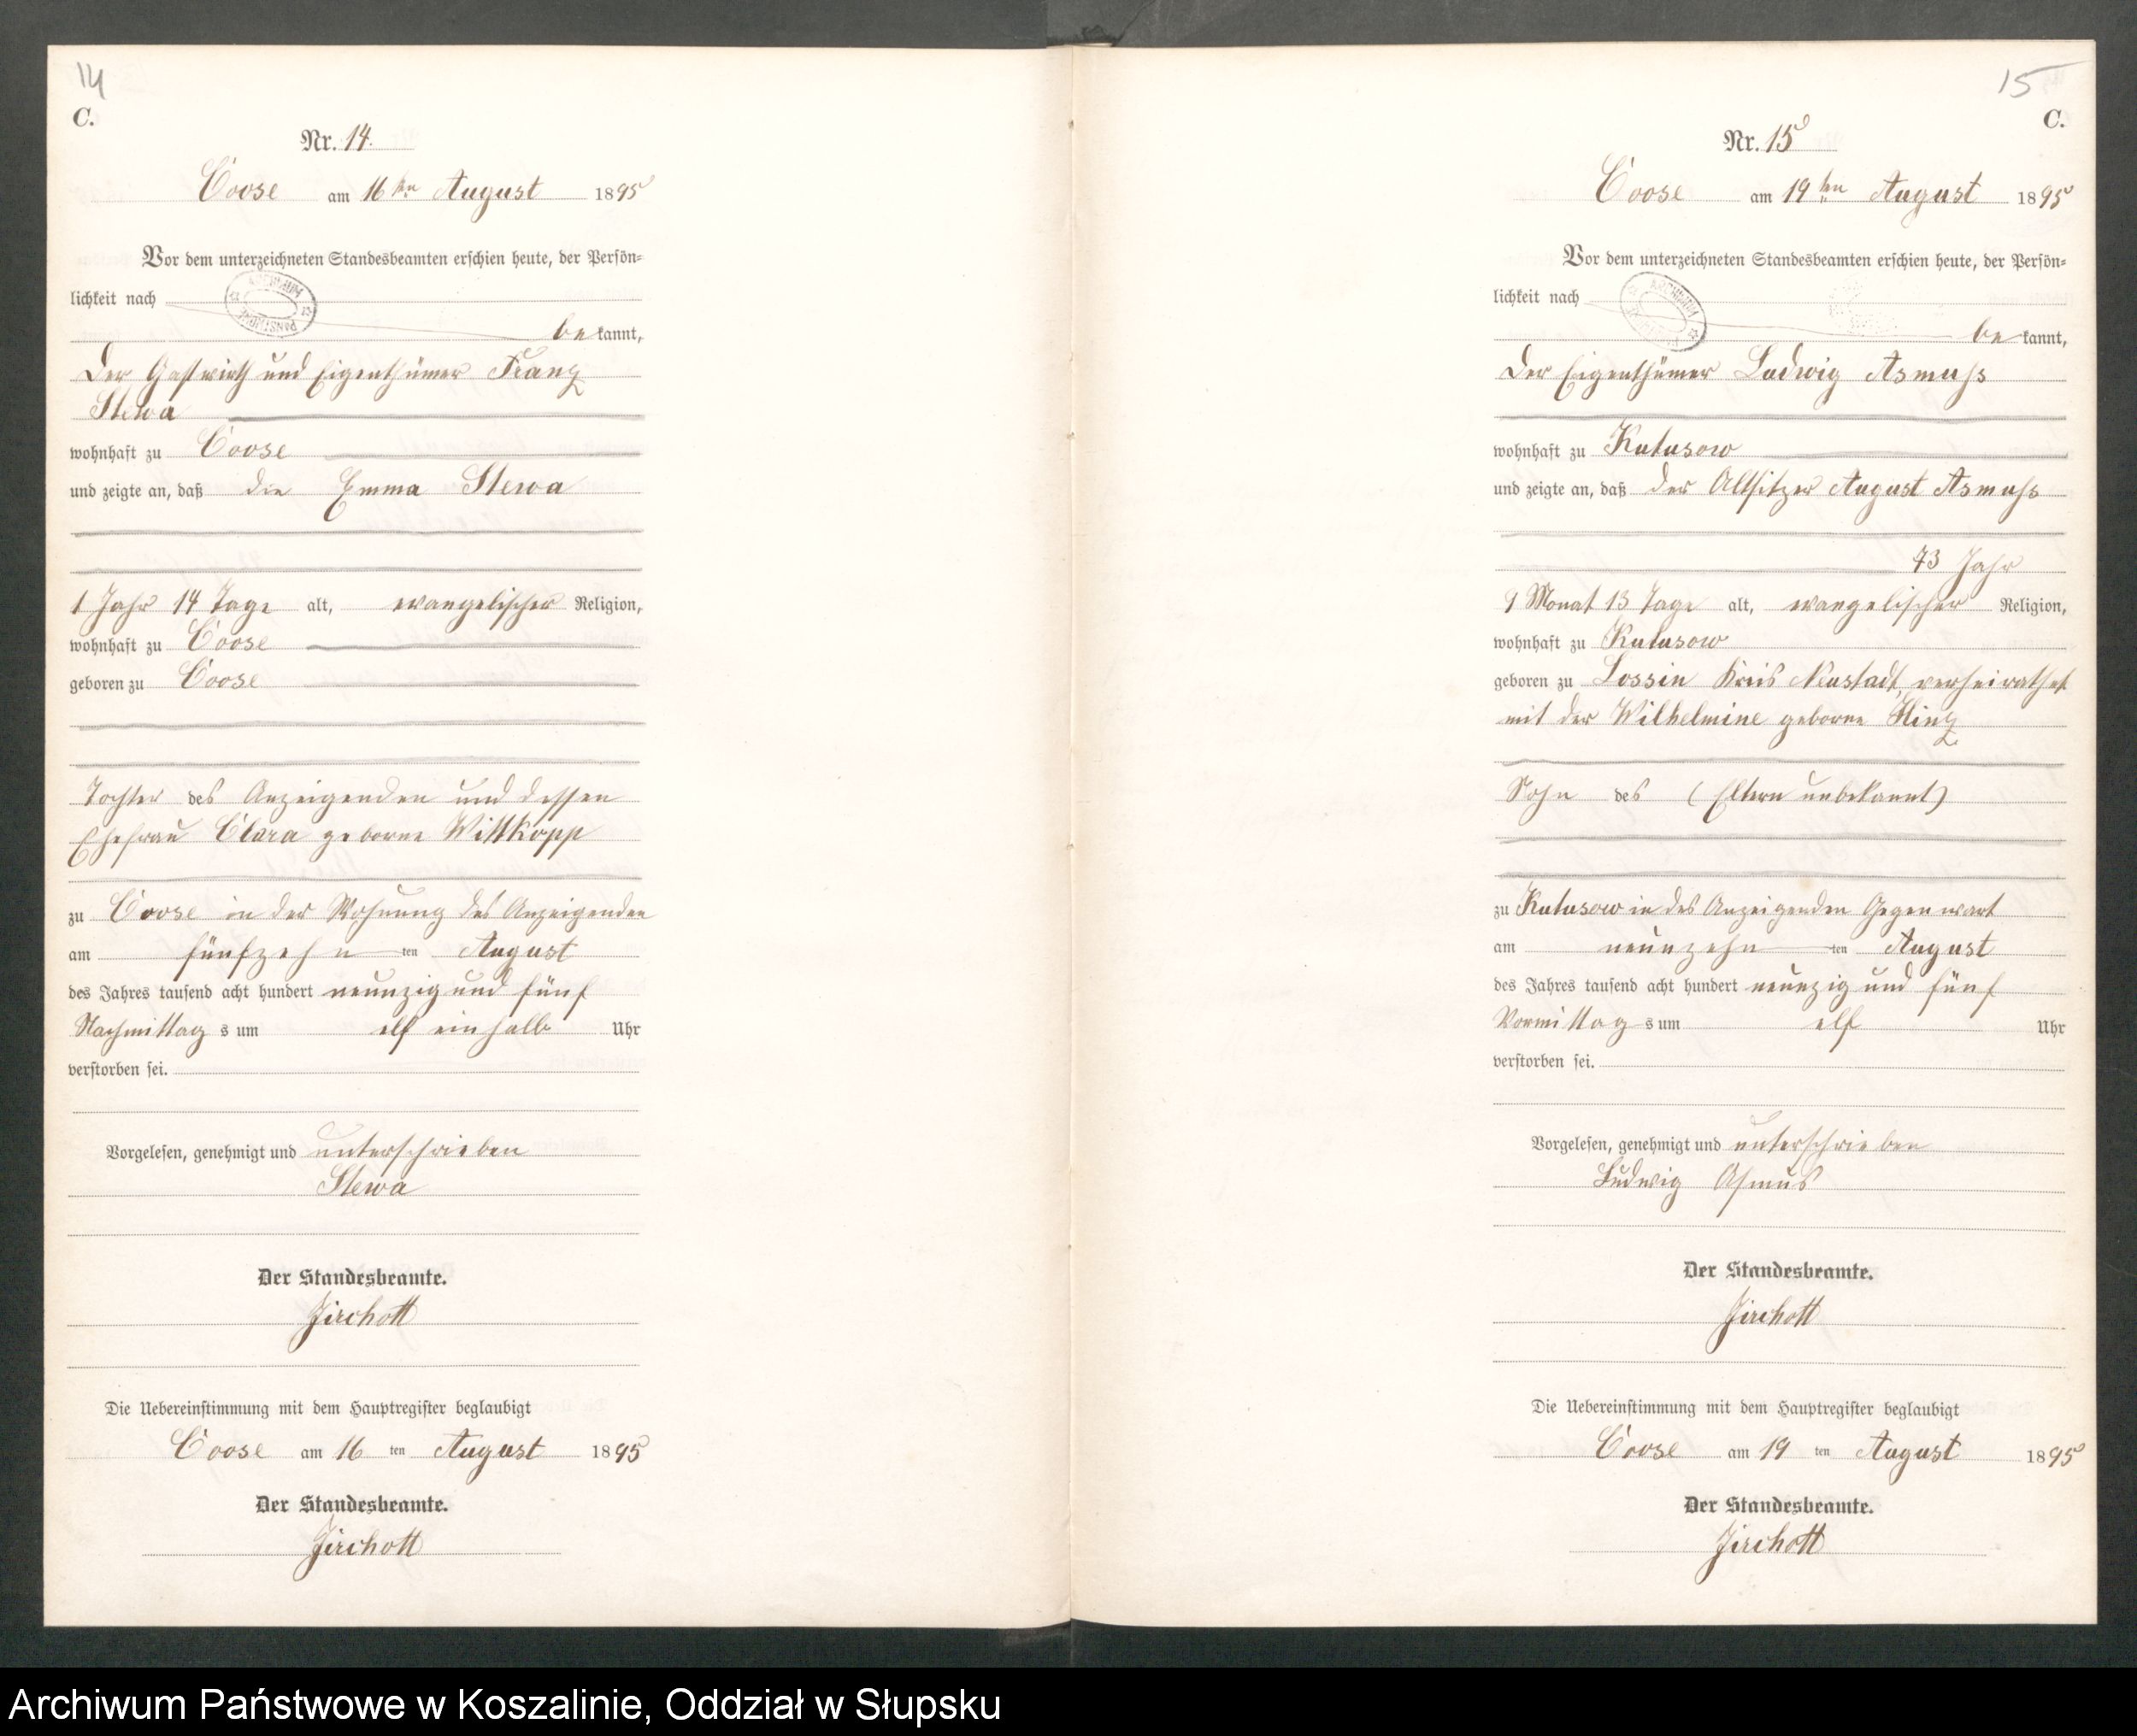 14
C.
Nr. 14.
Coose am 16ten August 1895
Vor dem unterzeichneten Standesbeamten erschien heute, der Persön-
lichkeit nach
bekannt,
der Gastwirth und Eigenthümer Franz
Stewa
wohnhaft zu Coose
und zeigte an, daß die Emma Stewa
1 Jahr 14 Tage alt, evangelischer Religion,
wohnhaft zu Coose
geboren zu Coose
Tochter des Anzeigenden und dessen
Ehefrau Clara geborne Wittkopp
zu Coose in der Wohnung des Anzeigenden
am fünfzehnten August
des Jahres tausend acht hundert neunzig und fünf
Nachmittags um elf ein halb Uhr
verstorben sei.
Vorgelesen, genehmigt und unterschrieben
Stewa
Der Standesbeamte.
Jirchott
Die Uebereinstimmung mit dem Hauptregister beglaubigt
Coose am 16ten August 1895
Der Standesbeamte.
Jirchott
15
C.
Nr. 15
Coose am 19ten August 1895
Vor dem unterzeichneten Standesbeamten erschien heute, der Persön-
lichkeit nach
bekannt,
der Eigenthümer Ludwig Asmuss
wohnhaft zu Kutusow
und zeigte an, daß der Altsitzer August Asmuss
73 Jahr
9 Monat 13 Tage alt, evangelischer Religion,
wohnhaft zu Kutusow
geboren zu Lossin Kreis Neustadt, verheirathet
mit der Wilhelmine geborne
Sohn des (Eltern unbekannt)
zu Kutusow in des Anzeigenden Gegenwart
am neunzehnten August
des Jahres tausend acht hundert neunzig und fünf
Vormittags um elf Uhr
verstorben sei.
Vorgelesen, genehmigt und unterschrieben
Ludwig Asmus
Der Standesbeamte.
Jirchott
Die Uebereinstimmung mit dem Hauptregister beglaubigt
Coose am 19ten August 1895
Der Standesbeamte.
Jirchott
Archiwum Państwowe w Koszalinie, Oddział w Słupsku